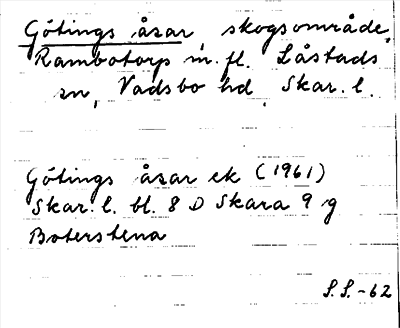 Götings åsar, skogsområde,
Rambotorp m. fl. Låstads
sn, Vadsbo hd, Skar. l.
Götings åsar ek (1961)
Skar. l. bl. 8 D Skara 9 g
Boterstena
S.S.-62